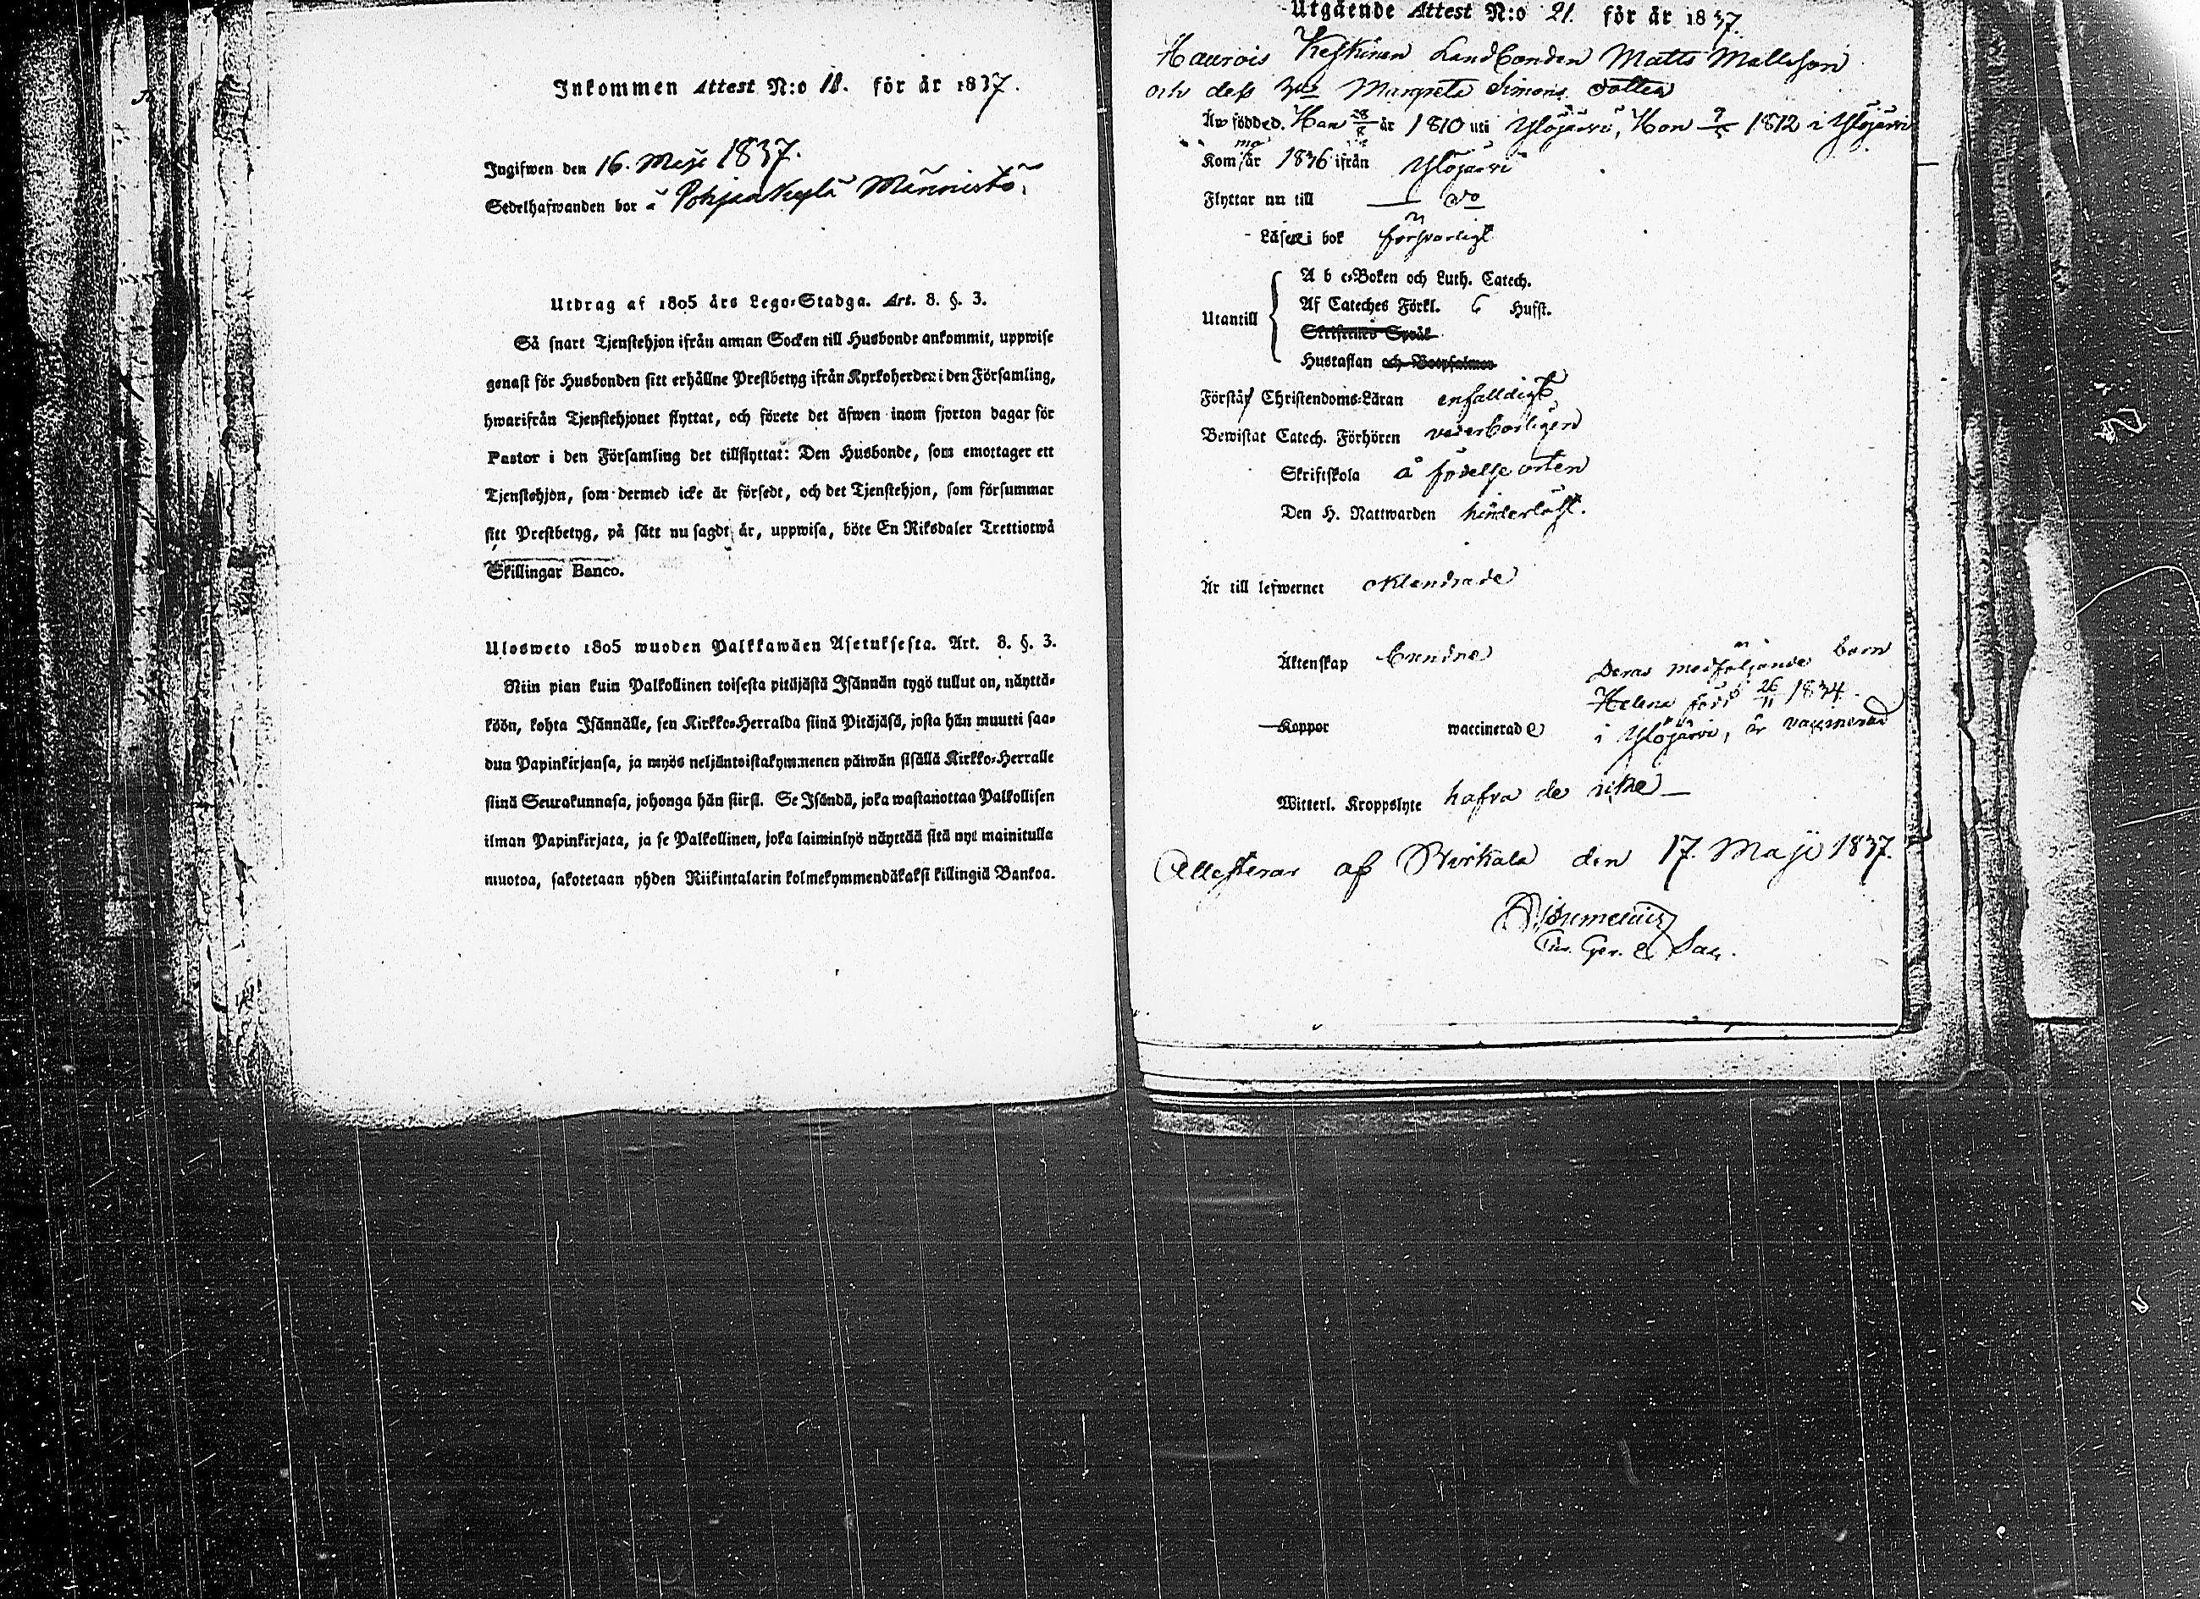 Inkommen Attest N:o 18. för år 1837.
Ingifwen den 16. Maji 1837.
Sedelhafwanden bor å Pohjankylä Männistö.
Utdrag af 1805 års Lego-Stadga. Art. 8. §. 3.
Så snart Tjenstehjon ifrån annan Socken till Husbonde ankommit, uppwise
genast för Husbonden sitt erhållne Prestbetyg ifrån Kyrkoherden i den Församling,
hwarifrån Tjenstehjonet flyttat, och förete det äfwen inom fjorton dagar för
Pastor i den Församling det tillflyttat: Den Husbonde, som emottager ett
Tjenstehjon, som dermed icke är försedt, och det Tjenstehjon, som försummar
sitt Prestbetyg, på sätt nu sagdt är, uppwisa, böte En Riksdaler Trettiotwå
Skillingar Banco.
Ulosweto 1805 wuoden Palkkawäen Asetuksesta. Art. 8. §. 3.
Niin pian kuin Palkollinen toisesta pitäjästä Isännän tygö tullut on, näyttä-
köön, kohta Isännälle, sen Kirkko-Herralda siinä Pitäjäsä, josta hän muutti saa-
dun Papinkirjansa, ja myös neljäntoistakymmenen päiwän sisällä Kirkko-Herralle
siinä Seurakunnasa, johonga hän siirsi. Se Isändä, joka wastanottaa Palkollisen
ilman Papinkirjata, ja se Palkollinen, joka laiminlyö näyttää sitä nyt mainitulla
muotoa, sakotetaan yhden Riikintalarin kolmekymmendäkaksi killingiä Bankoa.
Utgående Attest N:o 21. för år 1837.
Haurois Keskinen Landbonden Matts Mattsson
och dess Margreta Simons dotter
Äro födde d. Han 28/8 år 1810 uti Ylöjärvi, Hon 1812 i Ylöjärvi
Kommo år 1836 ifrån Ylöjärvi
Flyttar nu till — do
Läsa i bok försvarligt
Utantill
A b c-Boken och Luth. Catech.
Af Cateches Förkl. 6 Hufst.
Skriftenes Språk
Hustaflan och Botpsalmen
Förstår Christendoms-Läran enfaldigt
Bewistat Catech. Förhören vederbörligen
Skriftskola å födelse orten
Den H. Nattwarden hinderlöst.
Är till lefwernet oklandrade
Äktenskap bundne
Deras medföljande barn
Helena född 26/11 1834.
Koppor waccinerade
i Ylöjärvi, är vaccinerad
Witterl. Kroppslyte hafva de icke —
Attesteras af Birkala den 17. Maji 1837.